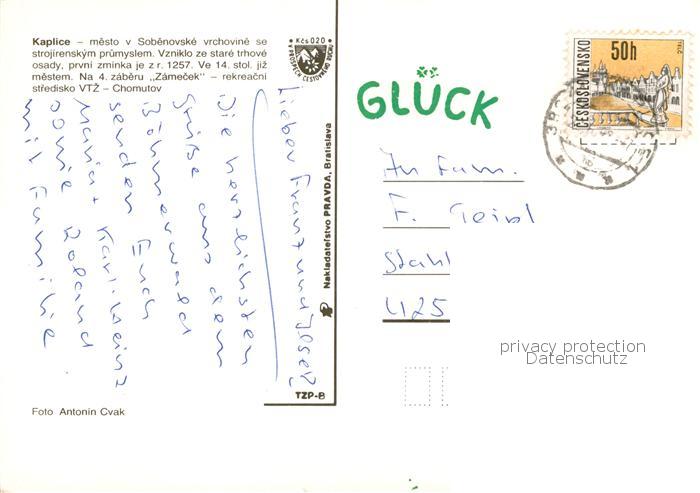 Kaplice – město v Soběnovské vrchovině se
strojírenským průmyslem. Vzniklo ze staré trhové
osady, první zmínka je z r. 1257. Ve 14. stol. již
městem. Na 4. záběru „Zámeček” – rekreační
středisko VTŽ – Chomutov
Kčs 020
Lieber Franz und Josef!
Die herzlichsten
Grüße aus dem
Böhmerwald
senden Euch
Maria + Karl-Heinz
sowie Roland
mit Familie
Foto Antonín Cvak
Nakladatelstvo PRAVDA, Bratislava
TZP-8
GLÜCK
ČESKOSLOVENSKO
50h
An Fam.
F. Teibl
Stahl
425
privacy protection
Datenschutz